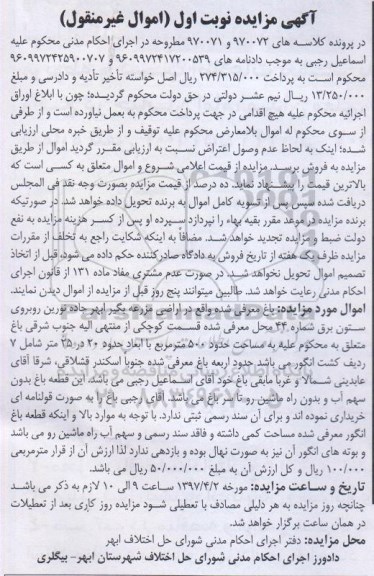 آگهی مزایده نوبت اول (اموال غیرمنقول)
در پرونده کلاسه های ۹۷۰۰۷۲ و ۹۷۰۰۷۱ مطروحه در اجرای احکام مدنی محکوم علیه
اسماعیل رجبی به موجب دادنامه های ۹۶۰۹۹۷۲۴۱۷۲۰۰۵۳۹ و ۹۶۰۹۹۷۲۴۲۵۹۰۰۷۰۷
محکوم است به پرداخت ۲۷۴/۳۱۵/۰۰۰ ریال اصل خواسته تأخیر تأدیه و دادرسی و مبلغ
۱۳/۲۵۰/۰۰۰ ریال نیم عشر دولتی در حق دولت محکوم گردیده؛ چون با ابلاغ اوراق
اجرائیه محکوم علیه هیچ اقدامی در جهت پرداخت محکوم به بعمل نیاورده است و از طرفی
از سوی محکوم له اموال بلامعارض محکوم علیه توقیف و از طریق خبره محلی ارزیابی
شده؛ اینک به لحاظ عدم وصول اعتراض نسبت به ارزیابی مقرر گردید اموال از طریق
مزایده به فروش برسد. مزایده از قیمت اعلامی شروع و اموال متعلق به کسی است که
بالاترین قیمت را پیشنهاد نماید. ده درصد از قیمت مزایده بصورت وجه نقد فی المجلس
دریافت شده سپس پس از تسویه کامل اموال به برنده تحویل داده خواهد شد. در صورتیکه
برنده مزایده در موعد مقرر بقیه بهاء را نپردازد سپرده او پس از کسر هزینه مزایده به نفع
دولت ضبط و مزایده تجدید خواهد شد. مضافاً به اینکه شکایت راجع به تخلف از مقررات
مزایده ظرف یک هفته از تاریخ فروش به دادگاه صادرکننده حکم داده می شود، قبل از اتخاذ
تصمیم اموال تحویل نخواهد شد. در صورت عدم مشتری مفاد ماده ۱۳۱ از قانون اجرای
احکام مدنی رعایت خواهد شد. طالبین میتوانند پنج روز قبل از مزایده از اموال دیدن نمایند.
اموال مورد مزایده: باغ معرفی شده واقع در اراضی درسجین ابهر جاده زورین روبروی
ستون برق شماره ۳۴ محل معرفی شده قسمت کوچکی از منتهی الیه جنوب شرقی باغ
متعلق به محکوم علیه به مساحت حدود ۵۰۰ مترمربع با ابعاد حدود ۲۰ در ۲۵ متر شامل ۷
ردیف کشت انگور می باشد حدود اربعه باغ معرفی شده جنوبا اسکندر قشلاقی، شرقا آقای
عابدینی شمالا و غربا مابقی باغ خود آقای اسماعیل رجبی می باشد. این قطعه باغ بدون
سهم آب و بدون راه ماشین رو تا سر باغ می باشد. آقای رجبی باغ را به صورت قولنامه ای
خریداری نموده اند و برای آن سند رسمی ثبتی ندارد. با توجه به موارد بالا و اینکه قطعه باغ
انگور معرفی شده مساحت کمی داشته و فاقد سند رسمی و سهم آب راه ماشین رو می باشد
و بوته های انگور آن نیز به صورت نهال بوده و بازدهی ندارد لذا ارزش آن از قرار مترمربعی
۱۰۰/۰۰۰ ریال و کل ارزش آن به مبلغ ۵۰/۰۰۰/۰۰۰ ریال می باشد.
تاریخ و ساعت مزایده: مورخه ۱۳۹۷/۴/۲ ساعت ۹ الی ۱۰ لازم به ذکر می باشد
چنانچه روز مزایده به هر دلیلی مصادف با تعطیلی شود مزایده روز کاری بعد از تعطیلات
در همان ساعت برگزار خواهد شد.
محل مزایده: دفتر اجرای احکام مدنی شورای حل اختلاف ابهر
دادورز اجرای احکام مدنی شورای حل اختلاف شهرستان ابهر- بیگلری